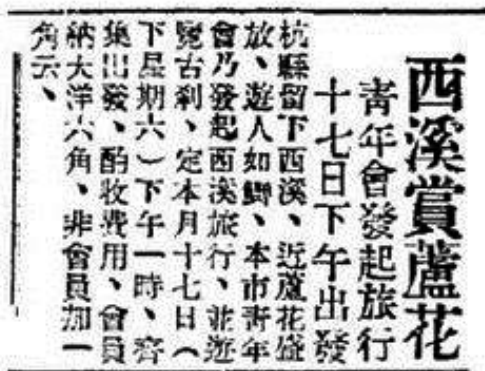 西溪賞蘆花
青年會發起旅行
十七日下午出發
杭縣留下西溪、近蘆花盛
放、遊人如鯽、本市青年
會乃發起西溪旅行、並遊
覽古刹、定本月十七日（
下星期六）下午一時、齊
集出發、酌收費用、會員
納大洋六角、非會員加一
角云、